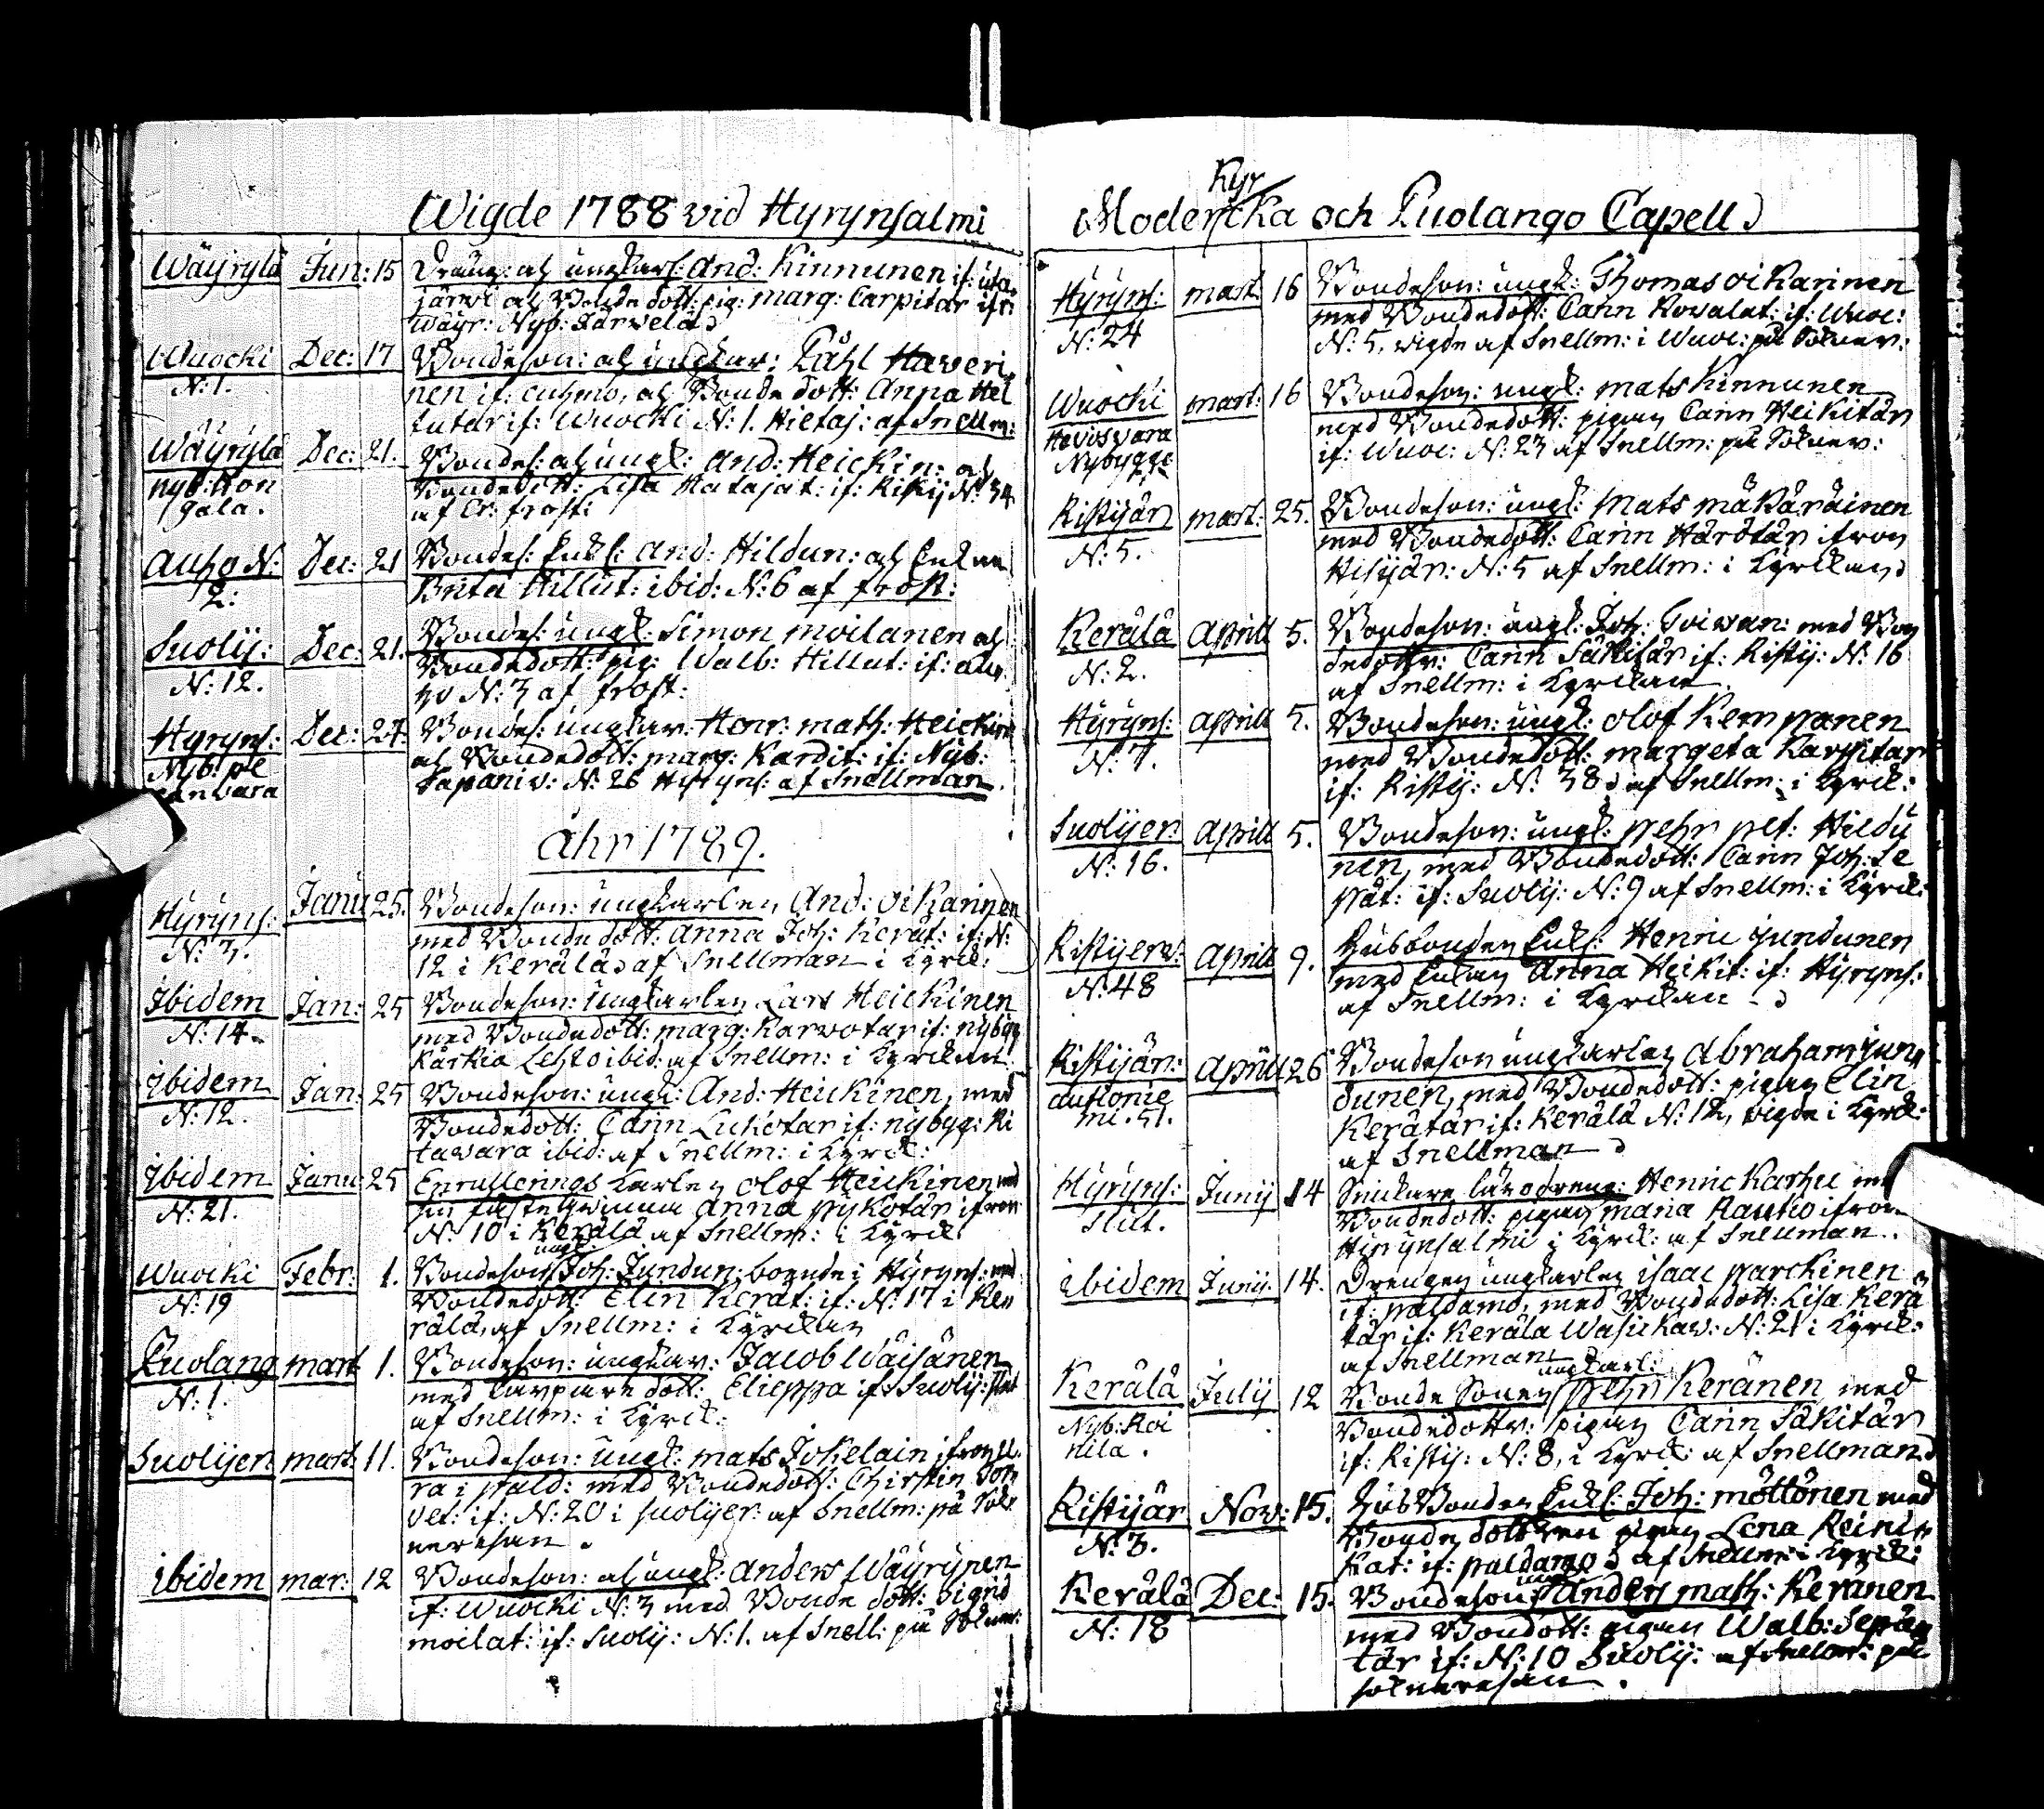 Wigde 1788 vid Hyrynsalmi
Wäyrylä Jun: 15 Dräng: och ungkarl: And: Kinnunen if: uta„
järvi och Bonde dott: pig: marg: Carpitar ifr:
wäyr: Nyb: Järvelä
Wuocki Dec: 17 Bondeson: och ungkar: Påhl Haveri„
N: 1. nen if: cuhmo, och Bonde dott: Anna Hel
tutar if: Wuocki N: 1. Hietaj: af Snellm:
Wäyrylä Dec: 21. Bondes: och ungk: And: Heickin: och
nyb: Kon Bondedott: Lisa Hatajat: if: Ristij N: 34
gala. af Cr: frost:
Auho N: Dec: 21 Bondes: Enkl: And: Hildun: och Enkan
2: Brita Hillut: ibid: N: 6 af frost:
Suolij: Dec: 21. Bondes: ungk: Simon moilanen och
N: 12. Bondedott: pig: Walb: Hillut: if: au„
ho N: 3 af frost:
Hyryns: Dec: 27. Bondes: ungkar: Henr: math: Heickin
Nyb: och Bondedott: marg: Kardit: if: Nyb:
vara Sapaniv: N: 26 Hyryns: af Snellman.
åhr 1789.
Hyryns: Janu 25. Bondeson: ungkarlen And: oikarinen
N: 3. med Bondedott: Anna Joh: Kerät: if: N:
12 i Kerälä af Snellman i Kyrck:
Ibidem Jan: 25 Bondeson: Ungkarlen Lars Heickinen
N: 14. med Bondedott: marg: Karvotar if: nybyg
Kårkia Lehto ibid: af Snellm: i Kyrckan:
ibidem Jan: 25 Bondeson: ungk: And: Heickinen, med
N: 12. Bondedott: Carin Lukotar if: nybyg: Ri
tavara ibid: af Snellm: i Kyrck:
ibidem Janu: 25 Enrullerings Karlen olof Heickinen med
N: 21. sin fästeqwinna Anna pykötär ifrån
N: 10 i Kerälä af Snellm: i Kyrck:
ungk:
Wuocki Febr: 1. Bondeson Joh: Jundun: boende i Hyryns: med
N: 19 Bondedott: Elin Kerät: if: N: 17 i Ke„
rälä, af Snellm: i Kyrckan
Puolang mart 1. Bondeson: ungkar: Jacob Wäisänen
N: 1. med Torpare dott: Elieppa if: Suolij: slut
af Snellm: i Kyrck:
Suolijer mart: 11. Bondeson: ungk: mats Jokelain ifrån
ra i pald: med Bondedott: Chirstin Tor
vet: if: N: 20 i Suolijer: af Snellm: på Sokn
neresan.
ibidem mar: 12 Bondeson: och ungk: anders Wäyrynen
if: Wuocki N: 3 med Bonde dott: Sigrid
moilat: if: Suolij: N: 1. af Snell: på Sokner:
Kyr
Moder ka och Puolango Capell
Hyryns: mart 16 Bondeson: ungk: Thomas oikarinen
N: 24 med Bondedott: Carin Kovalat: if: Wuoc:
N: 5, vigde af Snellm: i Wuoc: på Sokner:
Wuocki mart: 16 Bondeson: ungk: mats Kinnunen
Hevosvara med Bondedott: pigan Carin Heikitär
Nybygge if: Wuoc: N: 23 af Snellm: på Sokner:
Ristijär mart: 25. Bondeson: ungk: Mats mäkäräinen
N: 5. med Bondedott: Carin Härötär ifron
Hisijär: N: 5 af Snellm: i Kyrckan
Kerälä Aprill 5. Bondeson: ungk: Joh: Toivan: med Bon
N: 2. dedottr: Carin Säkitär if: Ristij: N: 16
af Snellm: i Kyrckan
Hyryns: aprill 5. Bondeson: ungk: olof Kemppanen
N: 7. med Bondedott: margeta Karpitar
if: Ristij: N: 38 af Snellm: i Kyrck:
Suolijer Aprill 5. Bondeson: ungk: pehr pet: Hildu
N: 16. nen, med Bondedott: Carin Joh: Se
pät: if: Suolij: N: 9 af Snellm: i Kyrck:
Ristijerv: Aprill 9. Husbonden Enkl: Henric jundunen
N: 48 med Enkan Anna Heikit: if: Hyryns:
af Snellm: i Kyrckan
Ristijär: Aprill 26 Bondeson ungkarlen Abraham jun„
autionie dunen, med Bondedott: pigan Elin
mi. 51. Kerätär if: Kerälä N: 12, vigde i Kyrck:
af Snellman
Hyryns: Junij 14 Snickare lärodreng: Henric Karhu
slut. Bondedott: pigan maria Rautio ifron
Hirynsalmi i Kyrck: af Snellman.
ibidem Junij. 14. Drengen ungkarlen isaac parckinen
if: paldamo, med Bondedott: Lisa Kerä
tär if: Kerälä Wasickav: N: 21 i Kyrck:
af Snellman
ungkarl:
Kerälä Julij 12 Bonde Sonen pehr Keränen med
Nyb: Koi Bondedottr: pigan Carin Säkitär
nila. if: Ristij: N: 8, i Kyrck: af Snellman
Ristijär Nov: 15. Husbonden Enkl: Joh: möttönen med
N: 3. Bonde dottren pigan Lena Reini„
kat: if: paldamo af Snellm: i Kyrck:
Kerälä Dec: 15. Bondeson Anders math: Keränen
N: 18 med Bondott: pigan Walb: Sepän
tär if: N: 10 Suolij: af Snellm: på
soknneresan.